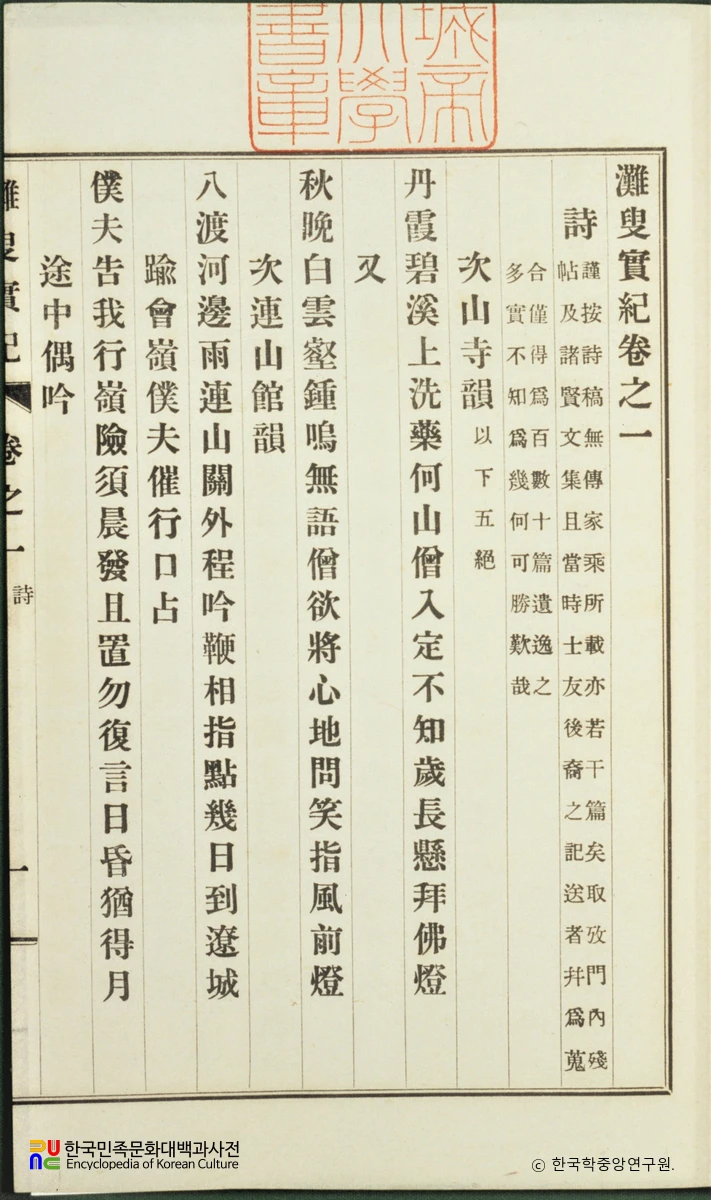 城帝
大學
書章
灘叟實紀卷之一
詩 謹按詩稿無傳家乘所載亦若干篇矣取攷門內殘
帖及諸賢文集且當時士友後裔之記送者幷爲蒐
合僅得爲百數十篇遺逸之
多實不知爲幾何可勝歎哉
次山寺韻 以下五絕
丹霞碧溪上洗藥何山僧入定不知歲長懸拜佛燈
又
秋晩白雲壑鍾鳴無語僧欲將心地問笑指風前燈
次連山館韻
八渡河邊雨連山關外程吟鞭相指點幾日到遼城
踰會嶺僕夫催行口占
僕夫告我行嶺險須晨發且置勿復言日昏猶得月
途中偶吟
灘叟實紀 卷之一 詩 一
한국민족문화대백과사전
Encyclopedia of Korean Culture
ⓒ 한국학중앙연구원.